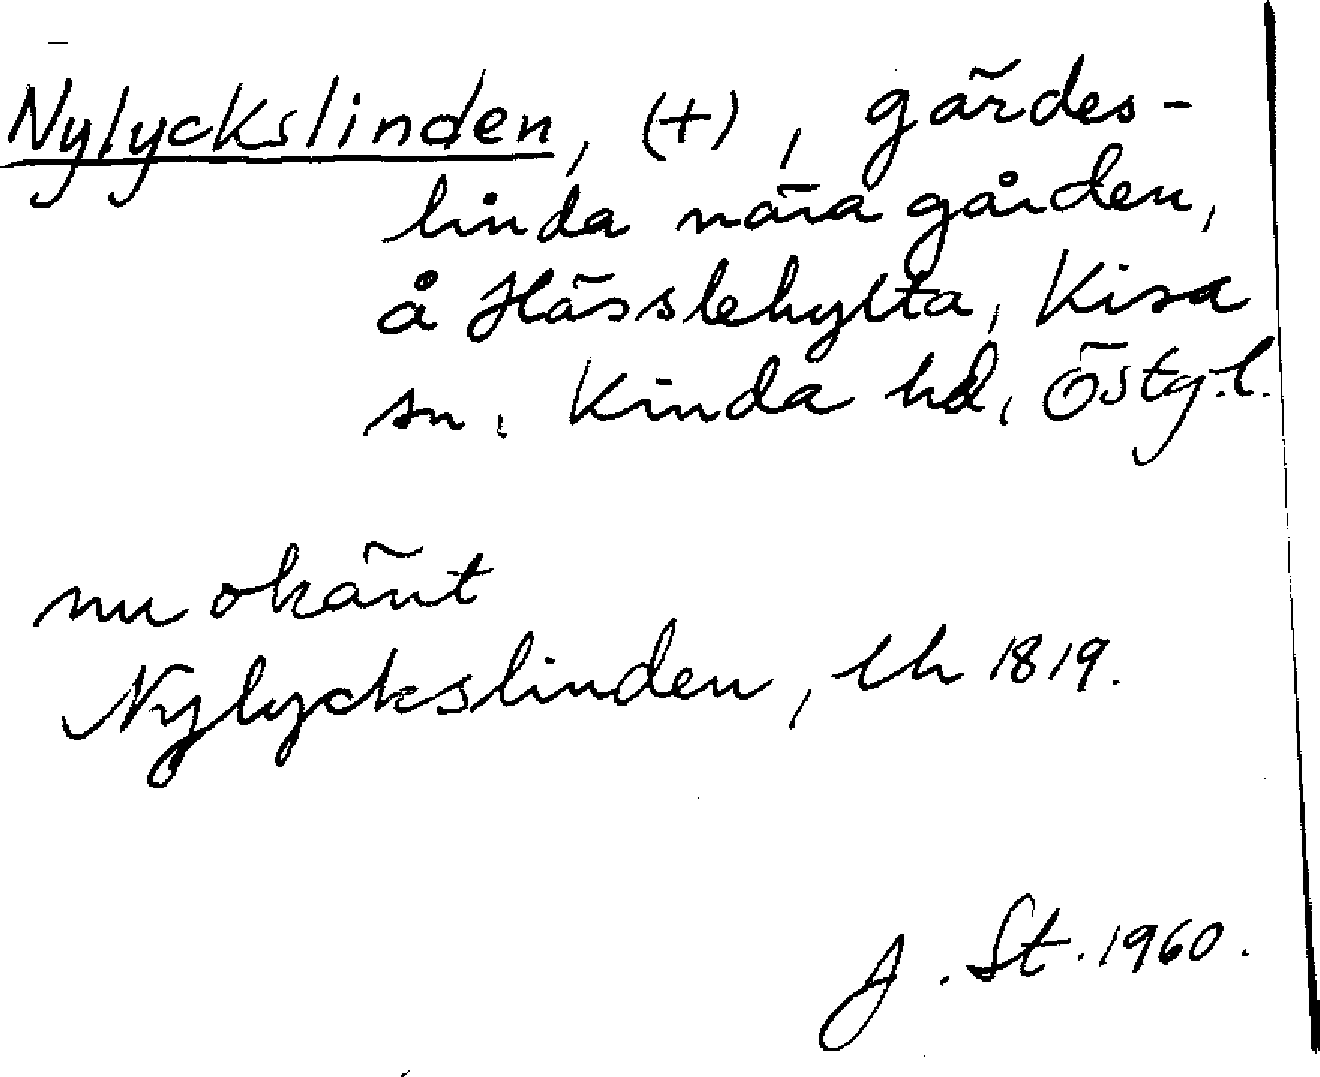 Nylyckslinden, (+), gärdes-
linda nära gården,
å Hässlehylta, Kisa
sn, Kinda hd, Östg.l.
nu okänt
Nylyckslinden, lh 1819.
J. St. 1960.